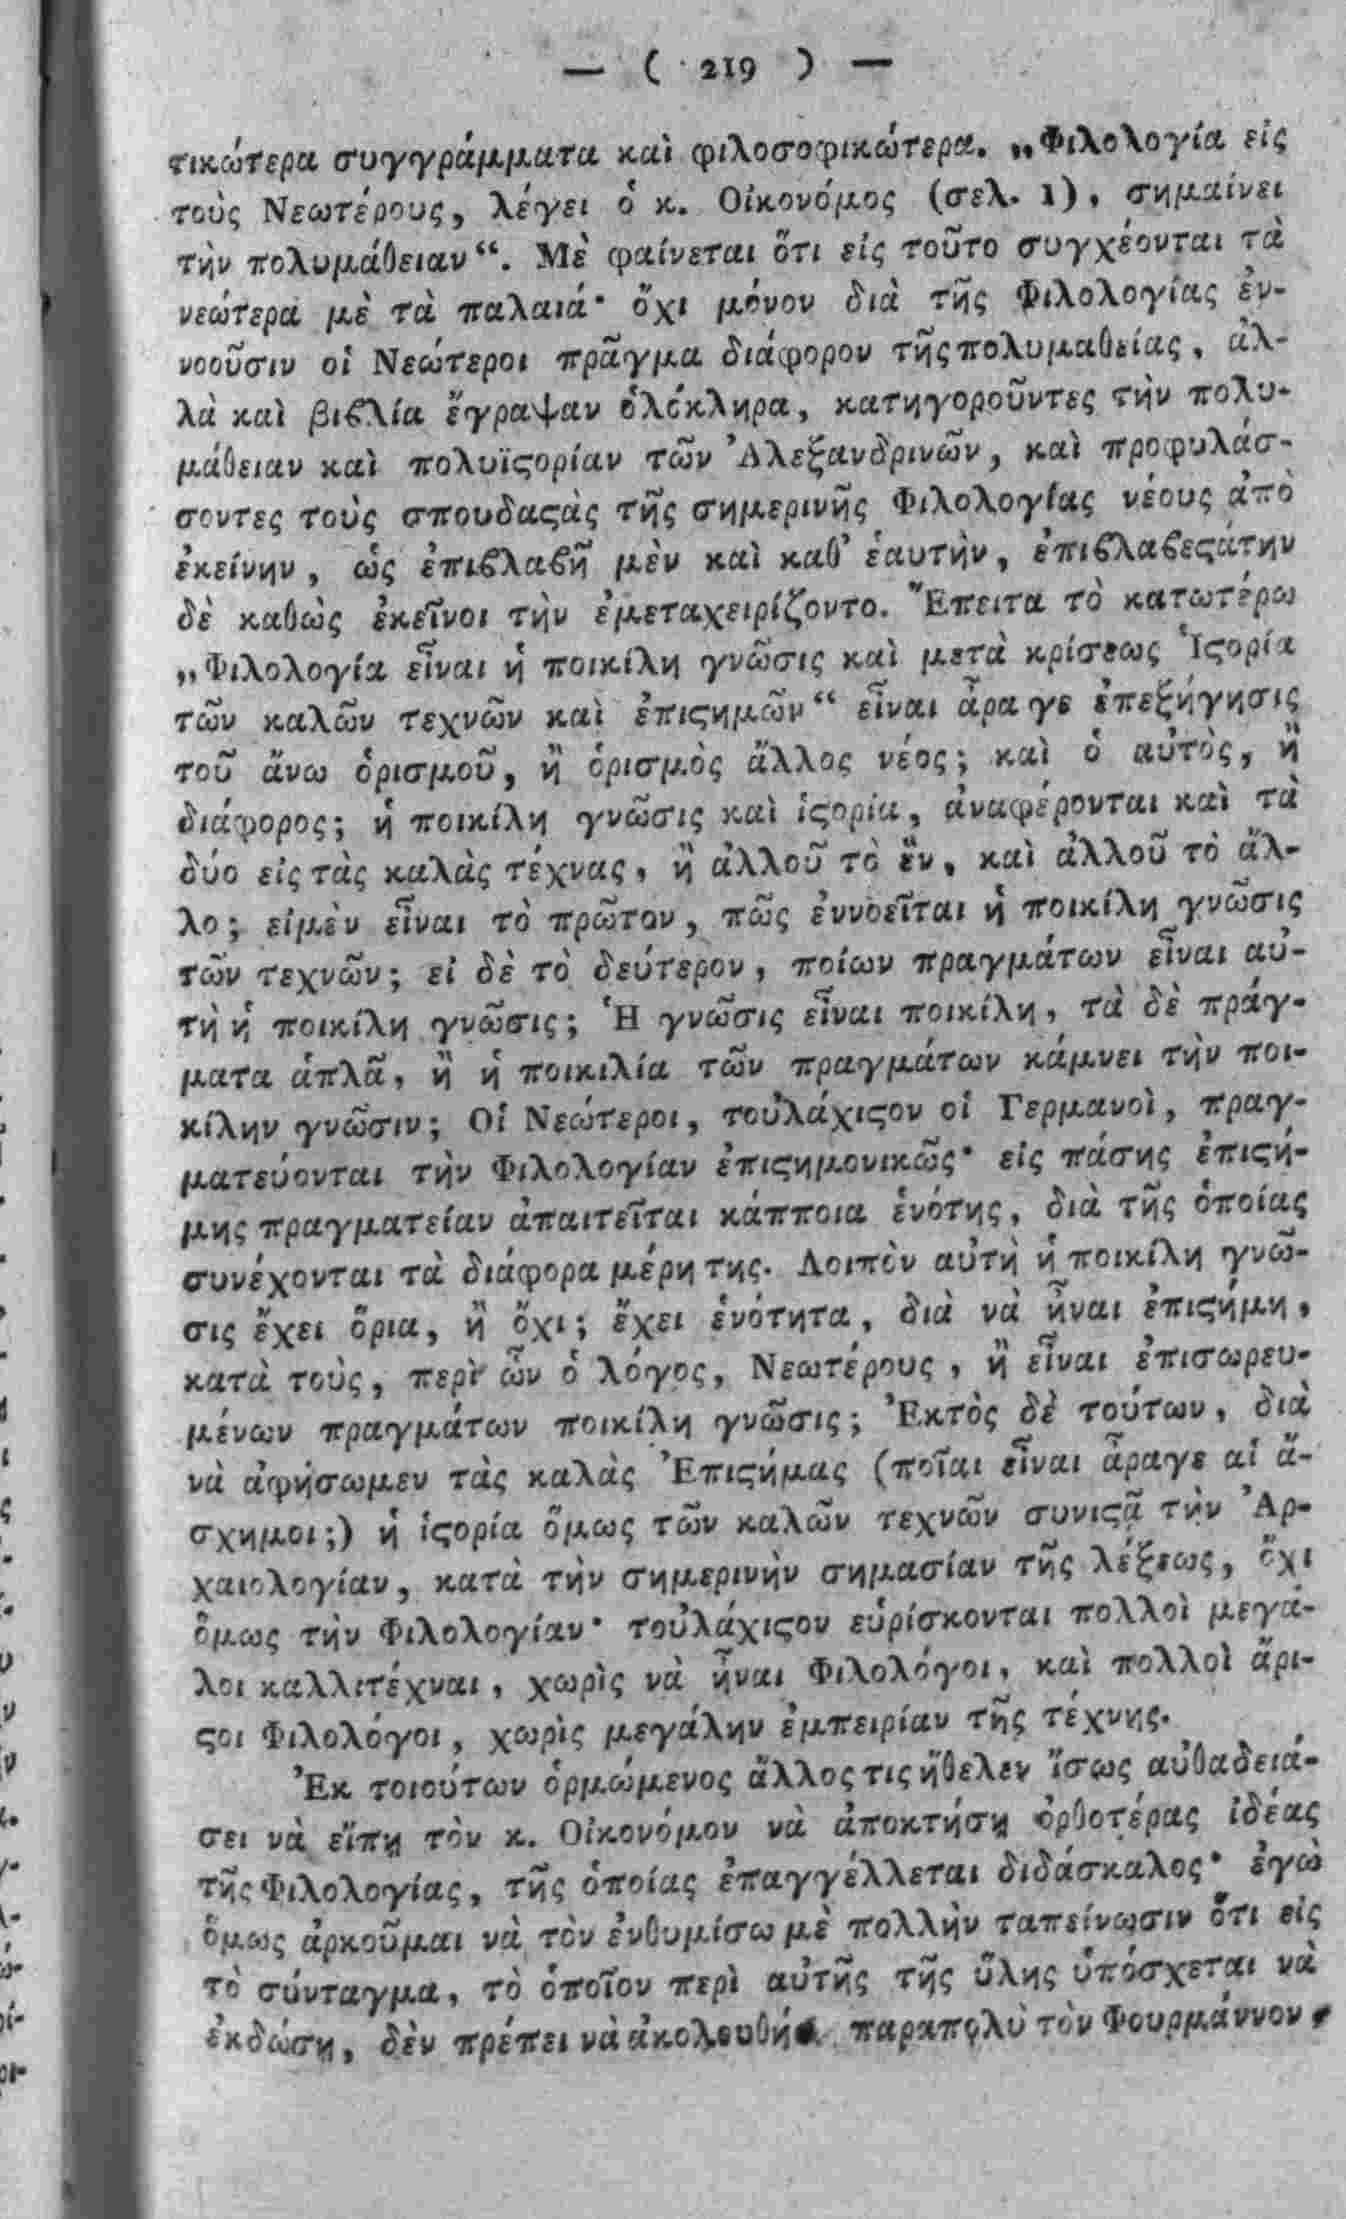 — ( 219 ) —
τικώτερα συγγράμματα καὶ φιλοσοφικώτερα. „Φιλολογία εἰς
τοὺς Νεωτέρους, λέγει ὁ κ. Οἰκονόμος (σελ. 1), σημαίνει
τὴν πολυμάθειαν“. Μὲ φαίνεται ὅτι εἰς τοῦτο συγχέονται τὰ
νεώτερα μὲ τὰ παλαιά· ὄχι μόνον διὰ τῆς Φιλολογίας ἐν-
νοοῦσιν οἱ Νεώτεροι πρᾶγμα διάφορον τῆς πολυμαθείας, ἀλ-
λὰ καὶ βιϐλία ἔγραψαν ὁλόκληρα, κατηγοροῦντες τὴν πολυ-
μάθειαν καὶ πολυϊϛορίαν τῶν Ἀλεξανδρινῶν, καὶ προφυλάσ-
σοντες τοὺς σπουδαϛὰς τῆς σημερινῆς Φιλολογίας νέους ἀπὸ
ἐκείνην, ὡς ἐπιϐλαϐῆ μὲν καὶ καθ’ ἑαυτὴν, ἐπιϐλαϐεϛάτην
δὲ καθὼς ἐκεῖνοι τὴν ἐμεταχειρίζοντο. Ἔπειτα τὸ κατωτέρω
„Φιλολογία εἶναι ἡ ποικίλη γνῶσις καὶ μετὰ κρίσεως Ἱϛορία
τῶν καλῶν τεχνῶν καὶ ἐπιϛημῶν“ εἶναι ἆρα γε ἐπεξήγησις
τοῦ ἄνω ὁρισμοῦ, ἢ ὁρισμὸς ἄλλος νέος; καὶ ὁ αὐτὸς, ἢ
διάφορος; ἡ ποικίλη γνῶσις καὶ ἱϛορία, ἀναφέρονται καὶ τὰ
δύο εἰς τὰς καλὰς τέχνας, ἢ ἀλλοῦ τὸ ἓν, καὶ ἀλλοῦ τὸ ἄλ-
λο; εἰμὲν εἶναι τὸ πρῶτον, πῶς ἐννοεῖται ἡ ποικίλη γνῶσις
τῶν τεχνῶν; εἰ δὲ τὸ δεύτερον, ποίων πραγμάτων εἶναι αὐ-
τὴ ἡ ποικίλη γνῶσις; Ἡ γνῶσις εἶναι ποικίλη, τὰ δὲ πράγ-
ματα ἁπλᾶ, ἢ ἡ ποικιλία τῶν πραγμάτων κάμνει τὴν ποι-
κίλην γνῶσιν; Οἱ Νεώτεροι, τοὐλάχιϛον οἱ Γερμανοὶ, πραγ-
ματεύονται τὴν Φιλολογίαν ἐπιϛημονικῶς· εἰς πάσης ἐπιϛή-
μης πραγματείαν ἀπαιτεῖται κάπποια ἑνότης, διὰ τῆς ὁποίας
συνέχονται τὰ διάφορα μέρη της. Λοιπὸν αὐτὴ ἡ ποικίλη γνῶ-
σις ἔχει ὅρια, ἢ ὄχι; ἔχει ἑνότητα, διὰ νὰ ἦναι ἐπιϛήμη,
κατὰ τοὺς, περὶ ὧν ὁ λόγος, Νεωτέρους, ἢ εἶναι ἐπισωρευ-
μένων πραγμάτων ποικίλη γνῶσις; Ἐκτὸς δὲ τούτων, διὰ
νὰ ἀφήσωμεν τὰς καλὰς Ἐπιϛήμας (ποῖαι εἶναι ἆραγε αἱ ἄ-
σχημοι;) ἡ ἱϛορία ὅμως τῶν καλῶν τεχνῶν συνιϛᾷ τὴν Ἀρ-
χαιολογίαν, κατὰ τὴν σημερινὴν σημασίαν τῆς λέξεως, ὄχι
ὅμως τὴν Φιλολογίαν· τοὐλάχιϛον εὑρίσκονται πολλοὶ μεγά-
λοι καλλιτέχναι, χωρὶς νὰ ἦναι Φιλολόγοι, καὶ πολλοὶ ἄρι-
ϛοι Φιλολόγοι, χωρὶς μεγάλην ἐμπειρίαν τῆς τέχνης.
Ἐκ τοιούτων ὁρμώμενος ἄλλος τις ἤθελεν ἴσως αὐθαδειά-
σει νὰ εἴπῃ τὸν κ. Οἰκονόμον νὰ ἀποκτήσῃ ὀρθοτέρας ἰδέας
τῆς Φιλολογίας, τῆς ὁποίας ἐπαγγέλλεται διδάσκαλος· ἐγὼ
ὅμως ἀρκοῦμαι νὰ τὸν ἐνθυμίσω μὲ πολλὴν ταπείνωσιν ὅτι εἰς
τὸ σύνταγμα, τὸ ὁποῖον περὶ αὐτῆς τῆς ὕλης ὑπόσχεται νὰ
ἐκδώσῃ, δὲν πρέπει νὰ παραπολὺ τὸν Φουρμάννον,